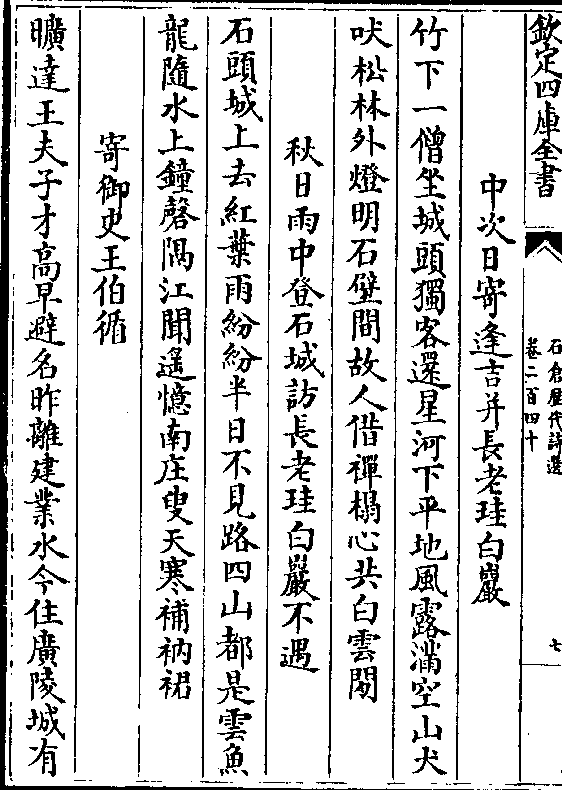 欽定四庫全書
石倉歷代詩選
卷二百四十
七
中次日寄逢吉并長老珪白巖
竹下一僧坐城頭獨客還星河下平地風露滿空山犬
吠松林外燈明石壁間故人借禪榻心共白雲閒
秋日雨中登石城訪長老珪白巖不遇
石頭城上去紅葉雨紛紛半日不見路四山都是雲魚
龍隨水上鐘磬隔江聞遥憶南庄叟天寒補衲裙
寄御史王伯循
曠達王夫子才高早避名昨離建業水今住廣陵城有